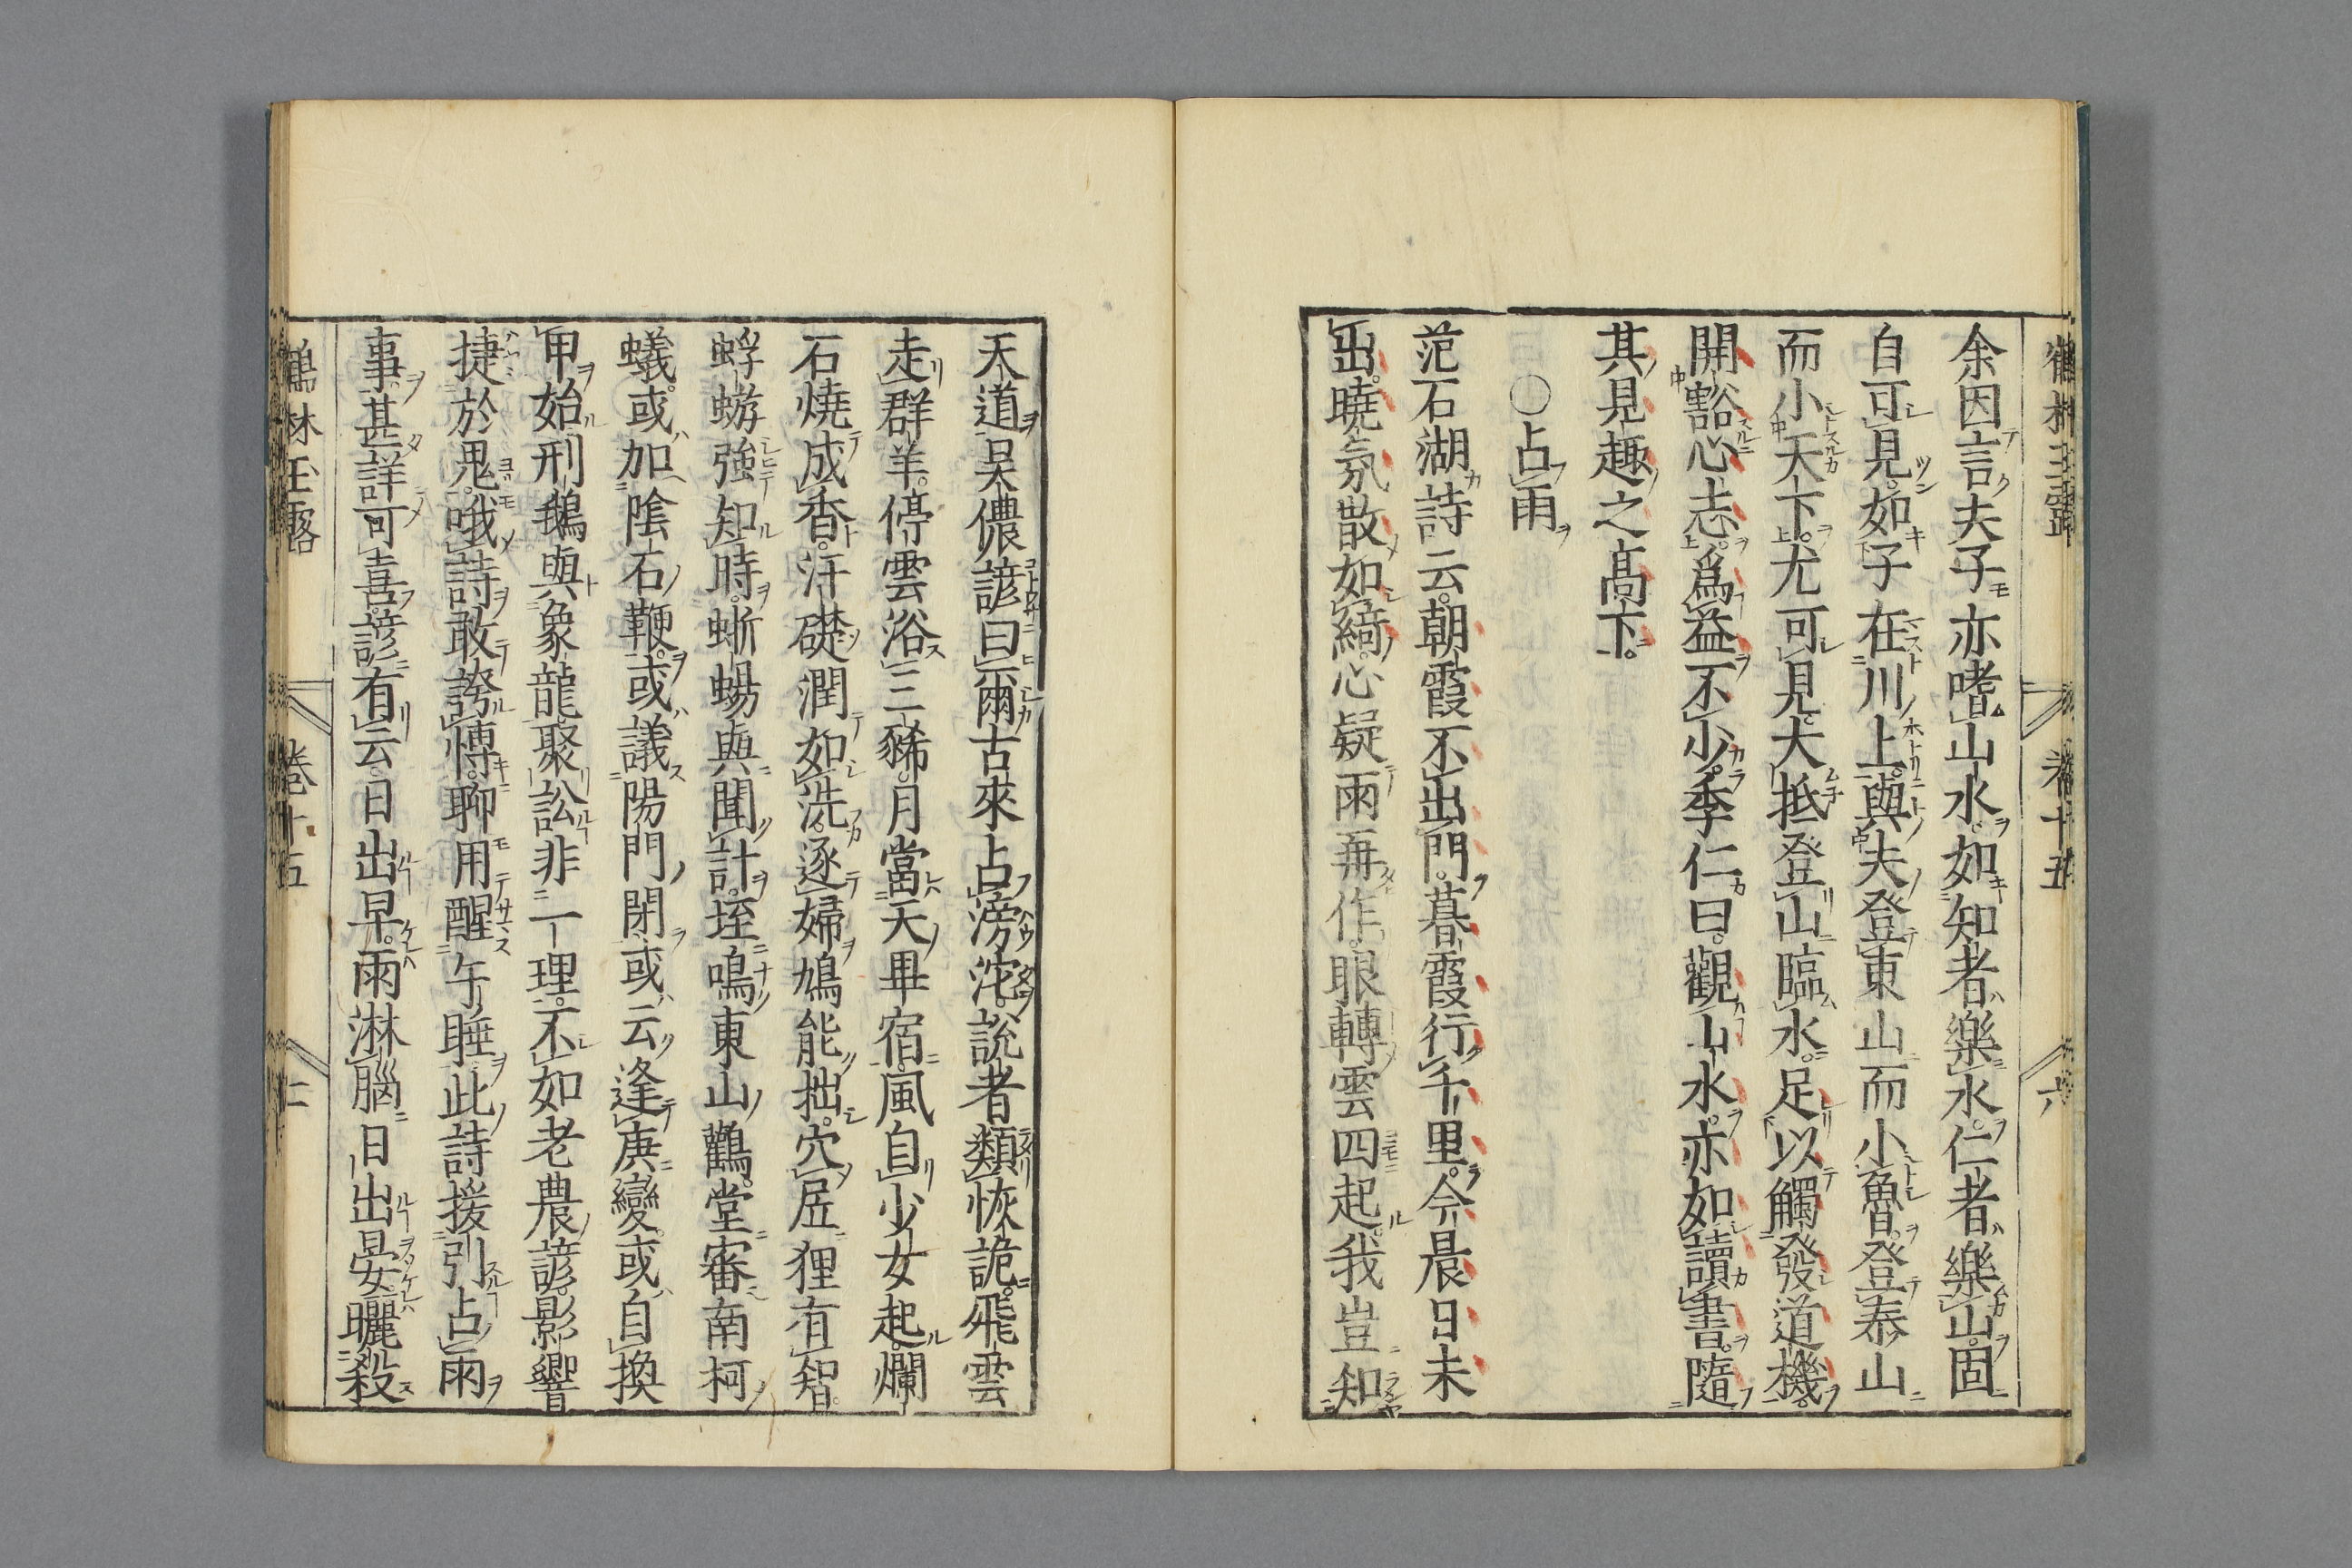 鶴林玉露 卷十五 六
余因言夫子亦嗜山水如知者樂水仁者樂山固
自可見如子在川上與夫登東山而小魯登泰山
而小天下尤可見大抵登山臨水足以觸發道機
開豁心志爲益不少季仁曰觀山水亦如讀書隨
其見趣之高下
○占雨
范石湖詩云朝霞不出門暮霞行千里今晨日未
出曉氛散如綺心疑雨再作眼轉雲四起我豈知
天道吳儂諺曰爾古來占滂沱說者類恢詭飛雲
走群羊停雲浴三豨月當天畢宿風自少女起爛
石燒成香汗礎潤如洗逐婦鳩能拙穴居狸有智
蜉蝣強知時蜥蜴與聞計垤鳴東山鸛堂審南柯
蟻或加陰石鞭或議陽門閉或云逢庚變或自換
甲始刑鵝與象龍聚訟非一理不如老農諺影響
捷於鬼哦詩敢誇博聊用醒午睡此詩援引占雨
事甚詳可喜諺有云日出早雨淋腦日出晏曬殺
鶴林玉露 卷十五